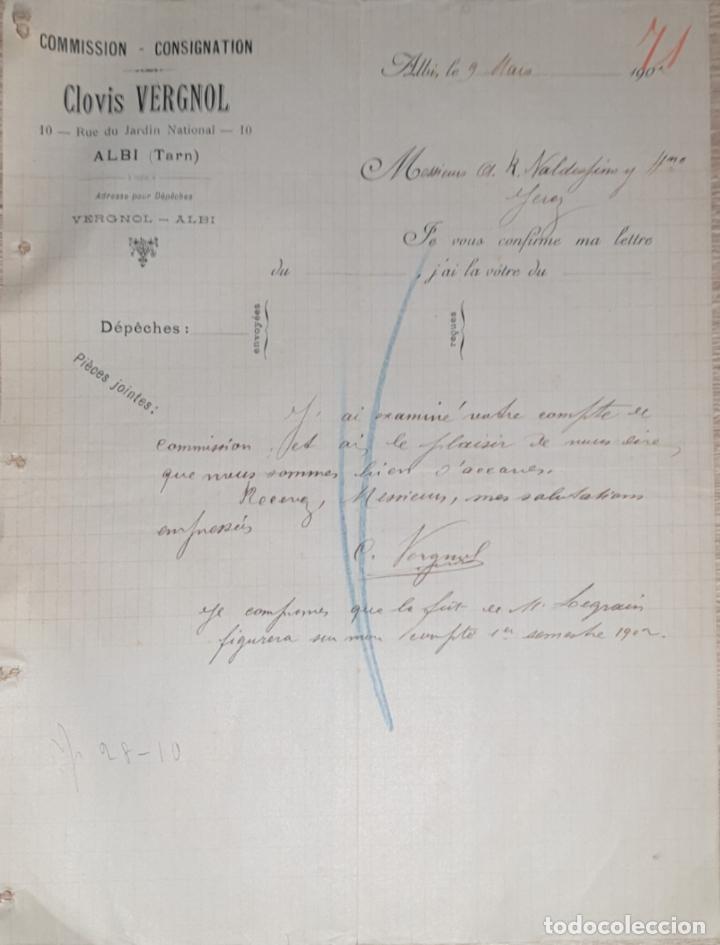 COMMISSION - CONSIGNATION
Clovis VERGNOL
10 — Rue du Jardin National — 10
ALBI (Tarn)
Adresse pour Dépêches
VERGNOL — ALBI
71
Albi, le 9 Mars 1902
Messieurs A. R. Valdespino y Hmo
Jerez
Je vous confirme ma lettre
du , j'ai la vôtre du
Dépêches : envoyées reçues
Pièces jointes :
J'ai examiné votre compte de
commission, et ai le plaisir de vous dire
que nous sommes bien d'accord.
Recevez, Messieurs, mes salutations
empressées
C. Vergnol
Je compte que le fût de M. Legrain
figurera sur mon compte 1er semestre 1902.
28-10
todocoleccion.net